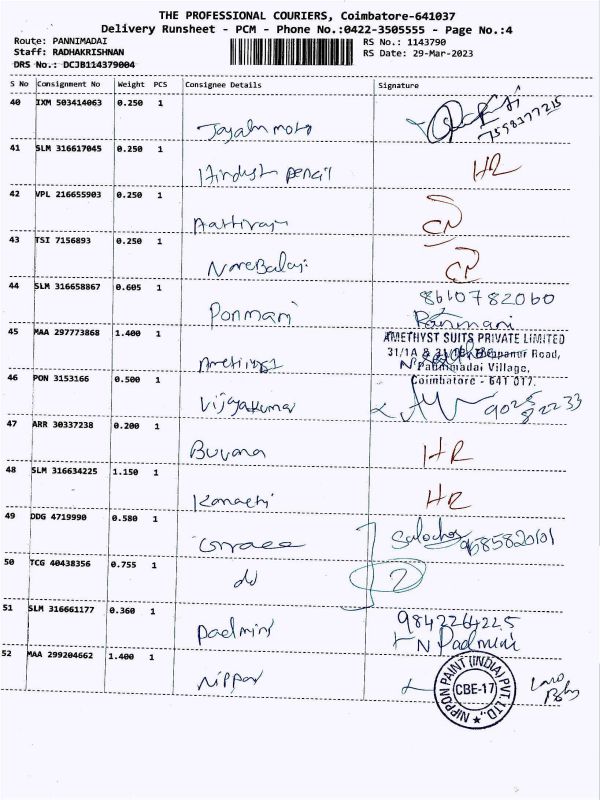 THE PROFESSIONAL COURIERS, Coimbatore-641037
Delivery Runsheet - PCM - Phone No.:0422-3505555 - Page No.:4
Route: PANNIMADAI
RS No.: 1143790
Staff: RADHAKRISHNAN
RS Date: 29-Mar-2023
DRS No.: DCJB114379004
S No Consignment No Weight PCS Consignee Details Signature
40 IXM 503414063 0.250 1
7598377215
41 SLM 316617045 0.250 1
Hindust pencil HR
42 VPL 216655903 0.250 1
CN
43 TSI 7156893 0.250 1
CN
44 SLM 316658867 0.605 1
8610782060
Ponmani
45 MAA 297773868 1.400 1
AMETHYST SUITS PRIVATE LIMITED
Road,
Pannimadai Village,
Coimbatore - 641 017.
46 PON 3153166 0.500 1
Vijayakumar
47 ARR 30337238 0.200 1
Buvana HR
48 SLM 316634225 1.150 1
HR
49 DDG 4719990 0.580 1
Grace
50 TCG 40438356 0.755 1
do 2
51 SLM 316661177 0.360 1
9842264225
Padmini N Padmini
52 MAA 299204662 1.400 1
Nippon
NIPPON PAINT (INDIA) PVT. LTD.
CBE-17